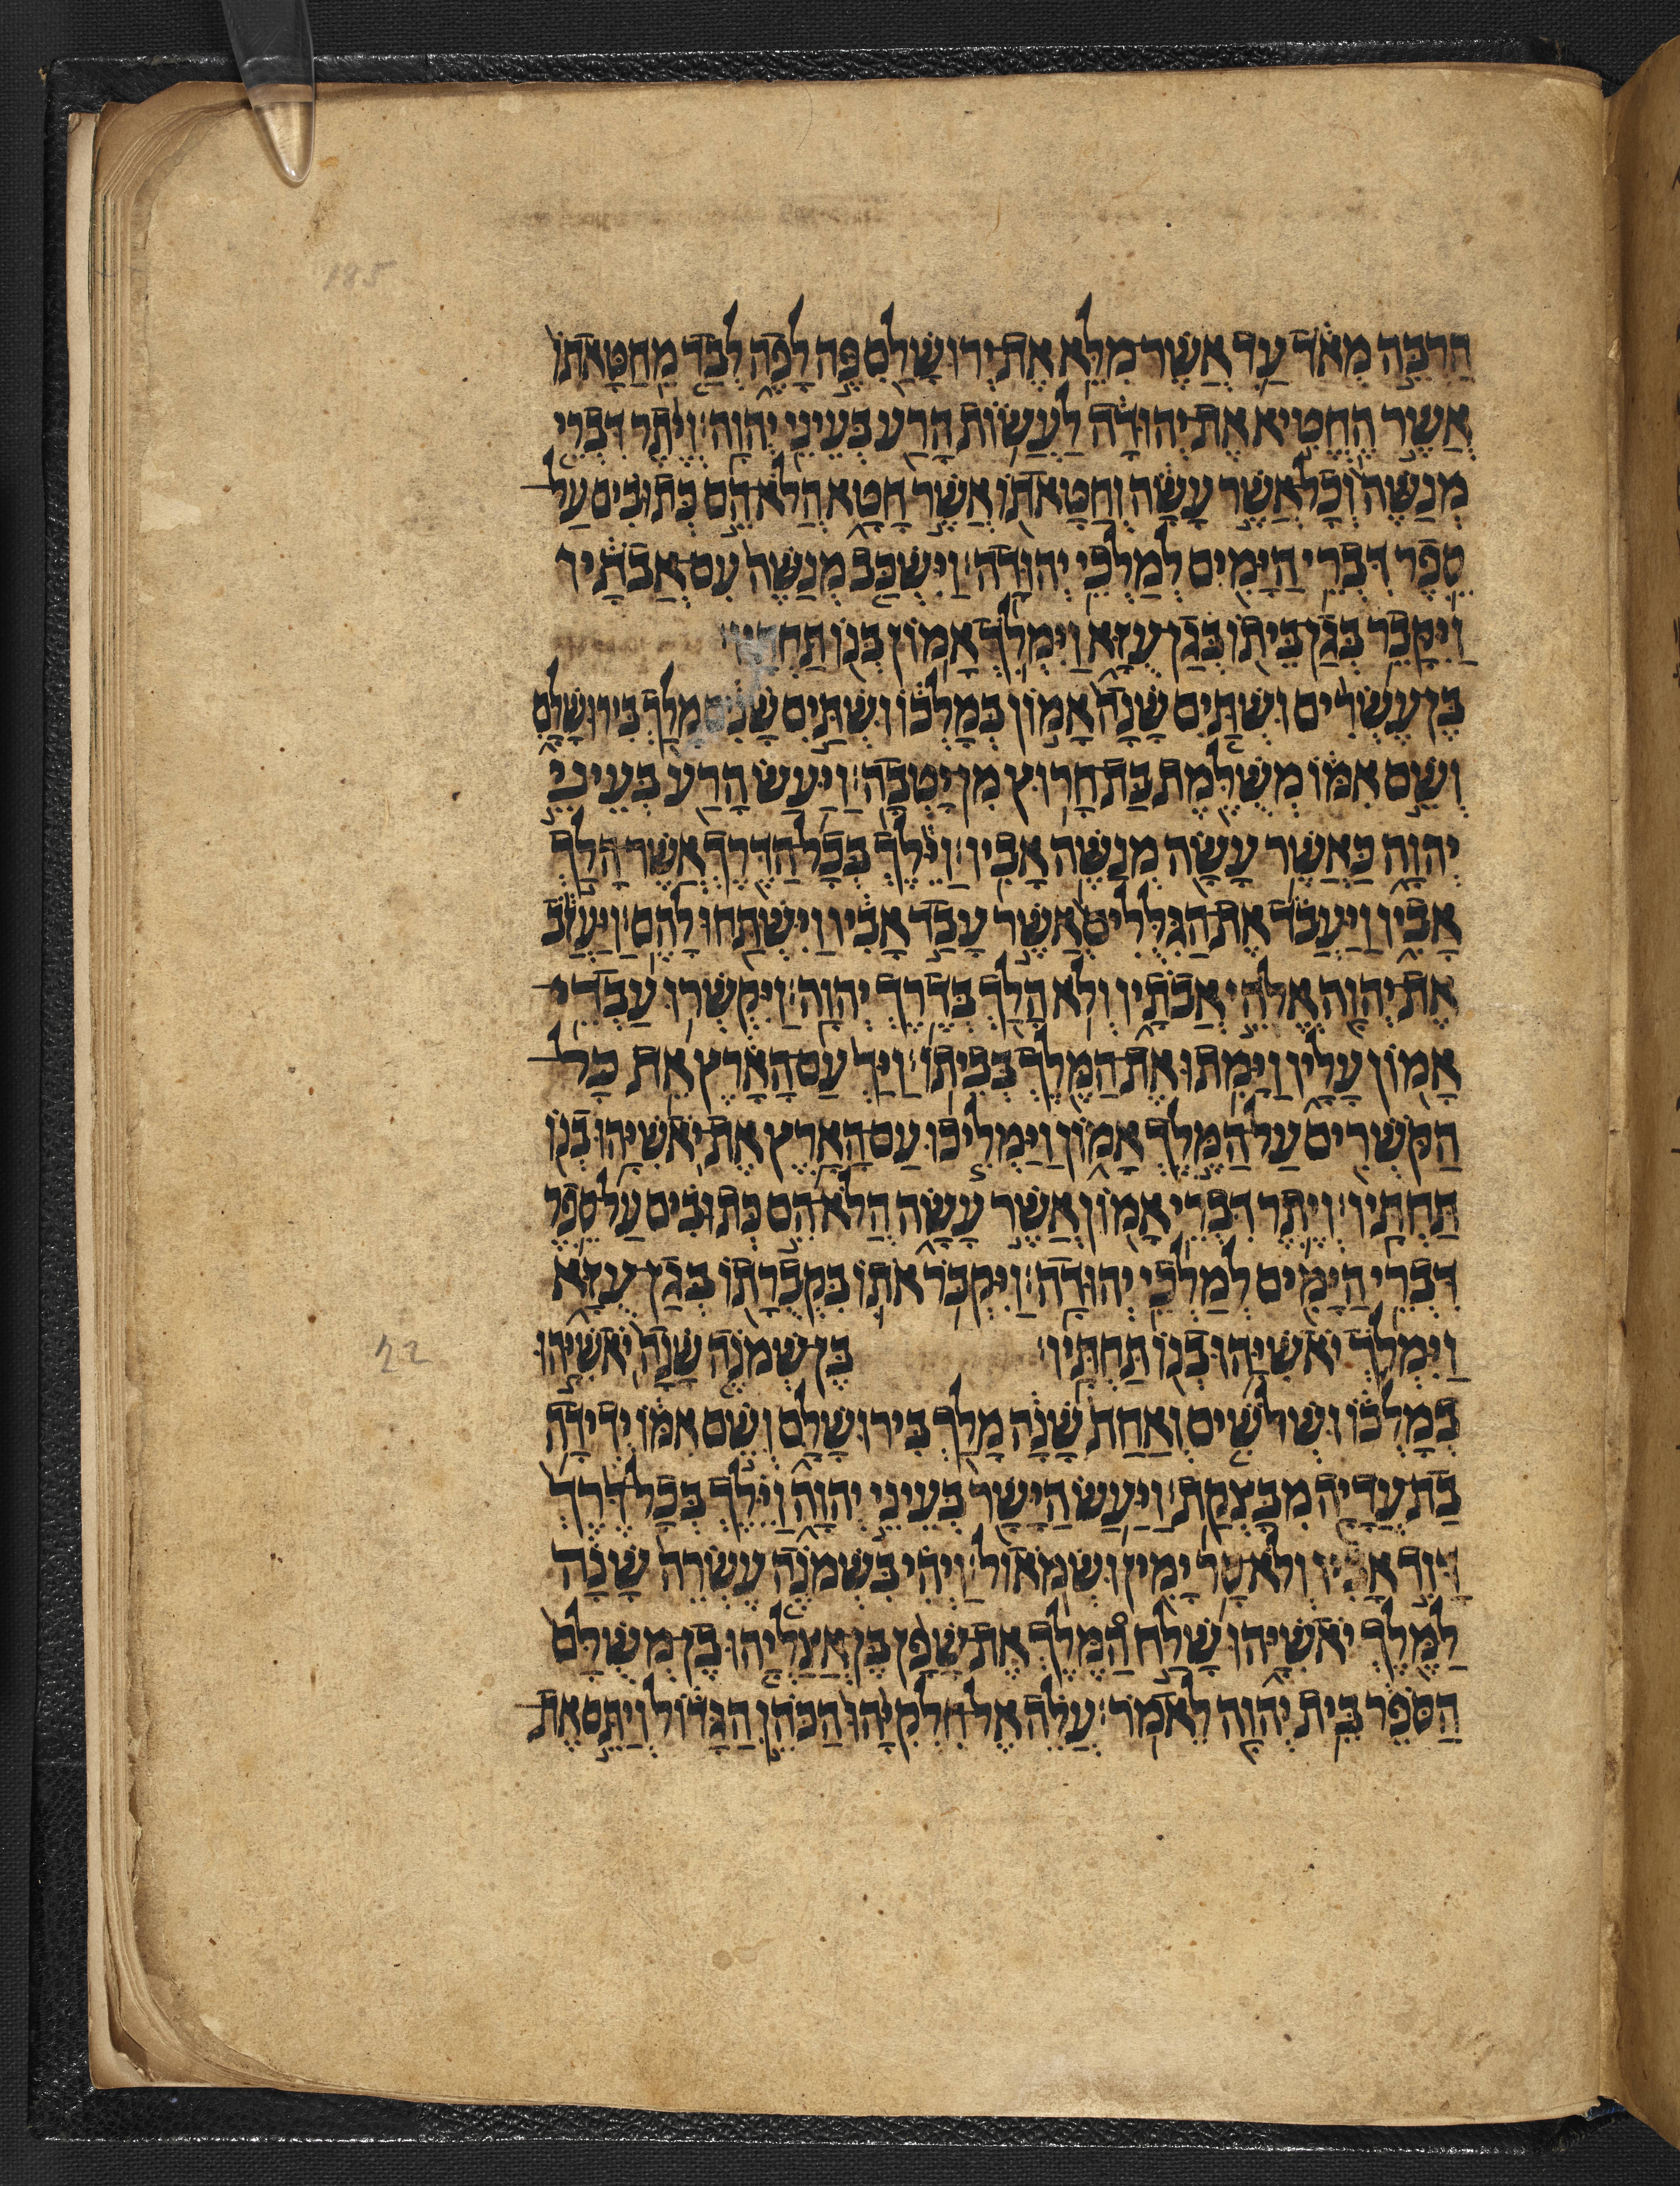 185
הַרְבֵּה מְאֹד עַד אֲשֶׁר מִלֵּא אֶת יְרוּשָׁלִַם פֶּה לָפֶה לְבַד מֵחַטָּאתוֹ
אֲשֶׁר הֶחֱטִיא אֶת יְהוּדָה לַעֲשׂוֹת הָרַע בְּעֵינֵי יְהוָה׃ וְיֶתֶר דִּבְרֵי
מְנַשֶּׁה וְכָל אֲשֶׁר עָשָׂה וְחַטָּאתוֹ אֲשֶׁר חָטָא הֲלֹא הֵם כְּתוּבִים עַל
סֵפֶר דִּבְרֵי הַיָּמִים לְמַלְכֵי יְהוּדָה׃ וַיִּשְׁכַּב מְנַשֶּׁה עִם אֲבֹתָיו
וַיִּקָּבֵר בְּגַן בֵּיתוֹ בְּגַן עֻזָּא וַיִּמְלֹךְ אָמוֹן בְּנוֹ תַּחְתָּיו׃
בֶּן עֶשְׂרִים וּשְׁתַּיִם שָׁנָה אָמוֹן בְּמָלְכוֹ וּשְׁתַּיִם שָׁנִים מָלַךְ בִּירוּשָׁלִָם
וְשֵׁם אִמּוֹ מְשֻׁלֶּמֶת בַּת חָרוּץ מִן יָטְבָה׃ וַיַּעַשׂ הָרַע בְּעֵינֵי
יְהוָה כַּאֲשֶׁר עָשָׂה מְנַשֶּׁה אָבִיו׃ וַיֵּלֶךְ בְּכָל הַדֶּרֶךְ אֲשֶׁר הָלַךְ
אָבִיו וַיַּעֲבֹד אֶת הַגִּלֻּלִים אֲשֶׁר עָבַד אָבִיו וַיִּשְׁתַּחוּ לָהֶם׃ וַיַּעֲזֹב
אֶת יְהוָה אֱלֹהֵי אֲבֹתָיו וְלֹא הָלַךְ בְּדֶרֶךְ יְהוָה׃ וַיִּקְשְׁרוּ עַבְדֵי
אָמוֹן עָלָיו וַיָּמִתוּ אֶת הַמֶּלֶךְ בְּבֵיתוֹ׃ וַיַּךְ עַם הָאָרֶץ אֵת כָּל
הַקֹּשְׁרִים עַל הַמֶּלֶךְ אָמוֹן וַיַּמְלִיכוּ עַם הָאָרֶץ אֶת יֹאשִׁיָּהוּ בְנוֹ
תַּחְתָּיו׃ וְיֶתֶר דִּבְרֵי אָמוֹן אֲשֶׁר עָשָׂה הֲלֹא הֵם כְּתוּבִים עַל סֵפֶר
דִּבְרֵי הַיָּמִים לְמַלְכֵי יְהוּדָה׃ וַיִּקְבֹּר אֹתוֹ בִּקְבֻרָתוֹ בְּגַן עֻזָּא
וַיִּמְלֹךְ יֹאשִׁיָּהוּ בְנוֹ תַּחְתָּיו׃ בֶּן שְׁמֹנֶה שָׁנָה יֹאשִׁיָּהוּ
22
בְמָלְכוֹ וּשְׁלֹשִׁים וְאַחַת שָׁנָה מָלַךְ בִּירוּשָׁלִָם וְשֵׁם אִמּוֹ יְדִידָה
בַת עֲדָיָה מִבָּצְקַת׃ וַיַּעַשׂ הַיָּשָׁר בְּעֵינֵי יְהוָה וַיֵּלֶךְ בְּכָל דֶּרֶךְ
דָּוִד אָבִיו וְלֹא סָר יָמִין וּשְׂמֹאול׃ וַיְהִי בִּשְׁמֹנֶה עֶשְׂרֵה שָׁנָה
לַמֶּלֶךְ יֹאשִׁיָּהוּ שָׁלַח הַמֶּלֶךְ אֶת שָׁפָן בֶּן אֲצַלְיָהוּ בֶּן מְשֻׁלָּם
הַסֹּפֵר בֵּית יְהוָה לֵאמֹר׃ עֲלֵה אֶל חִלְקִיָּהוּ הַכֹּהֵן הַגָּדוֹל וְיַתֵּם אֶת